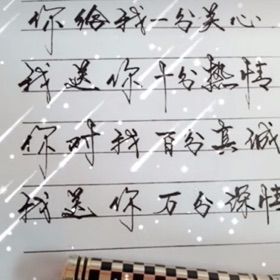 你给我一分关心
我送你十分热情
你对我百分真诚
我送你万分深情